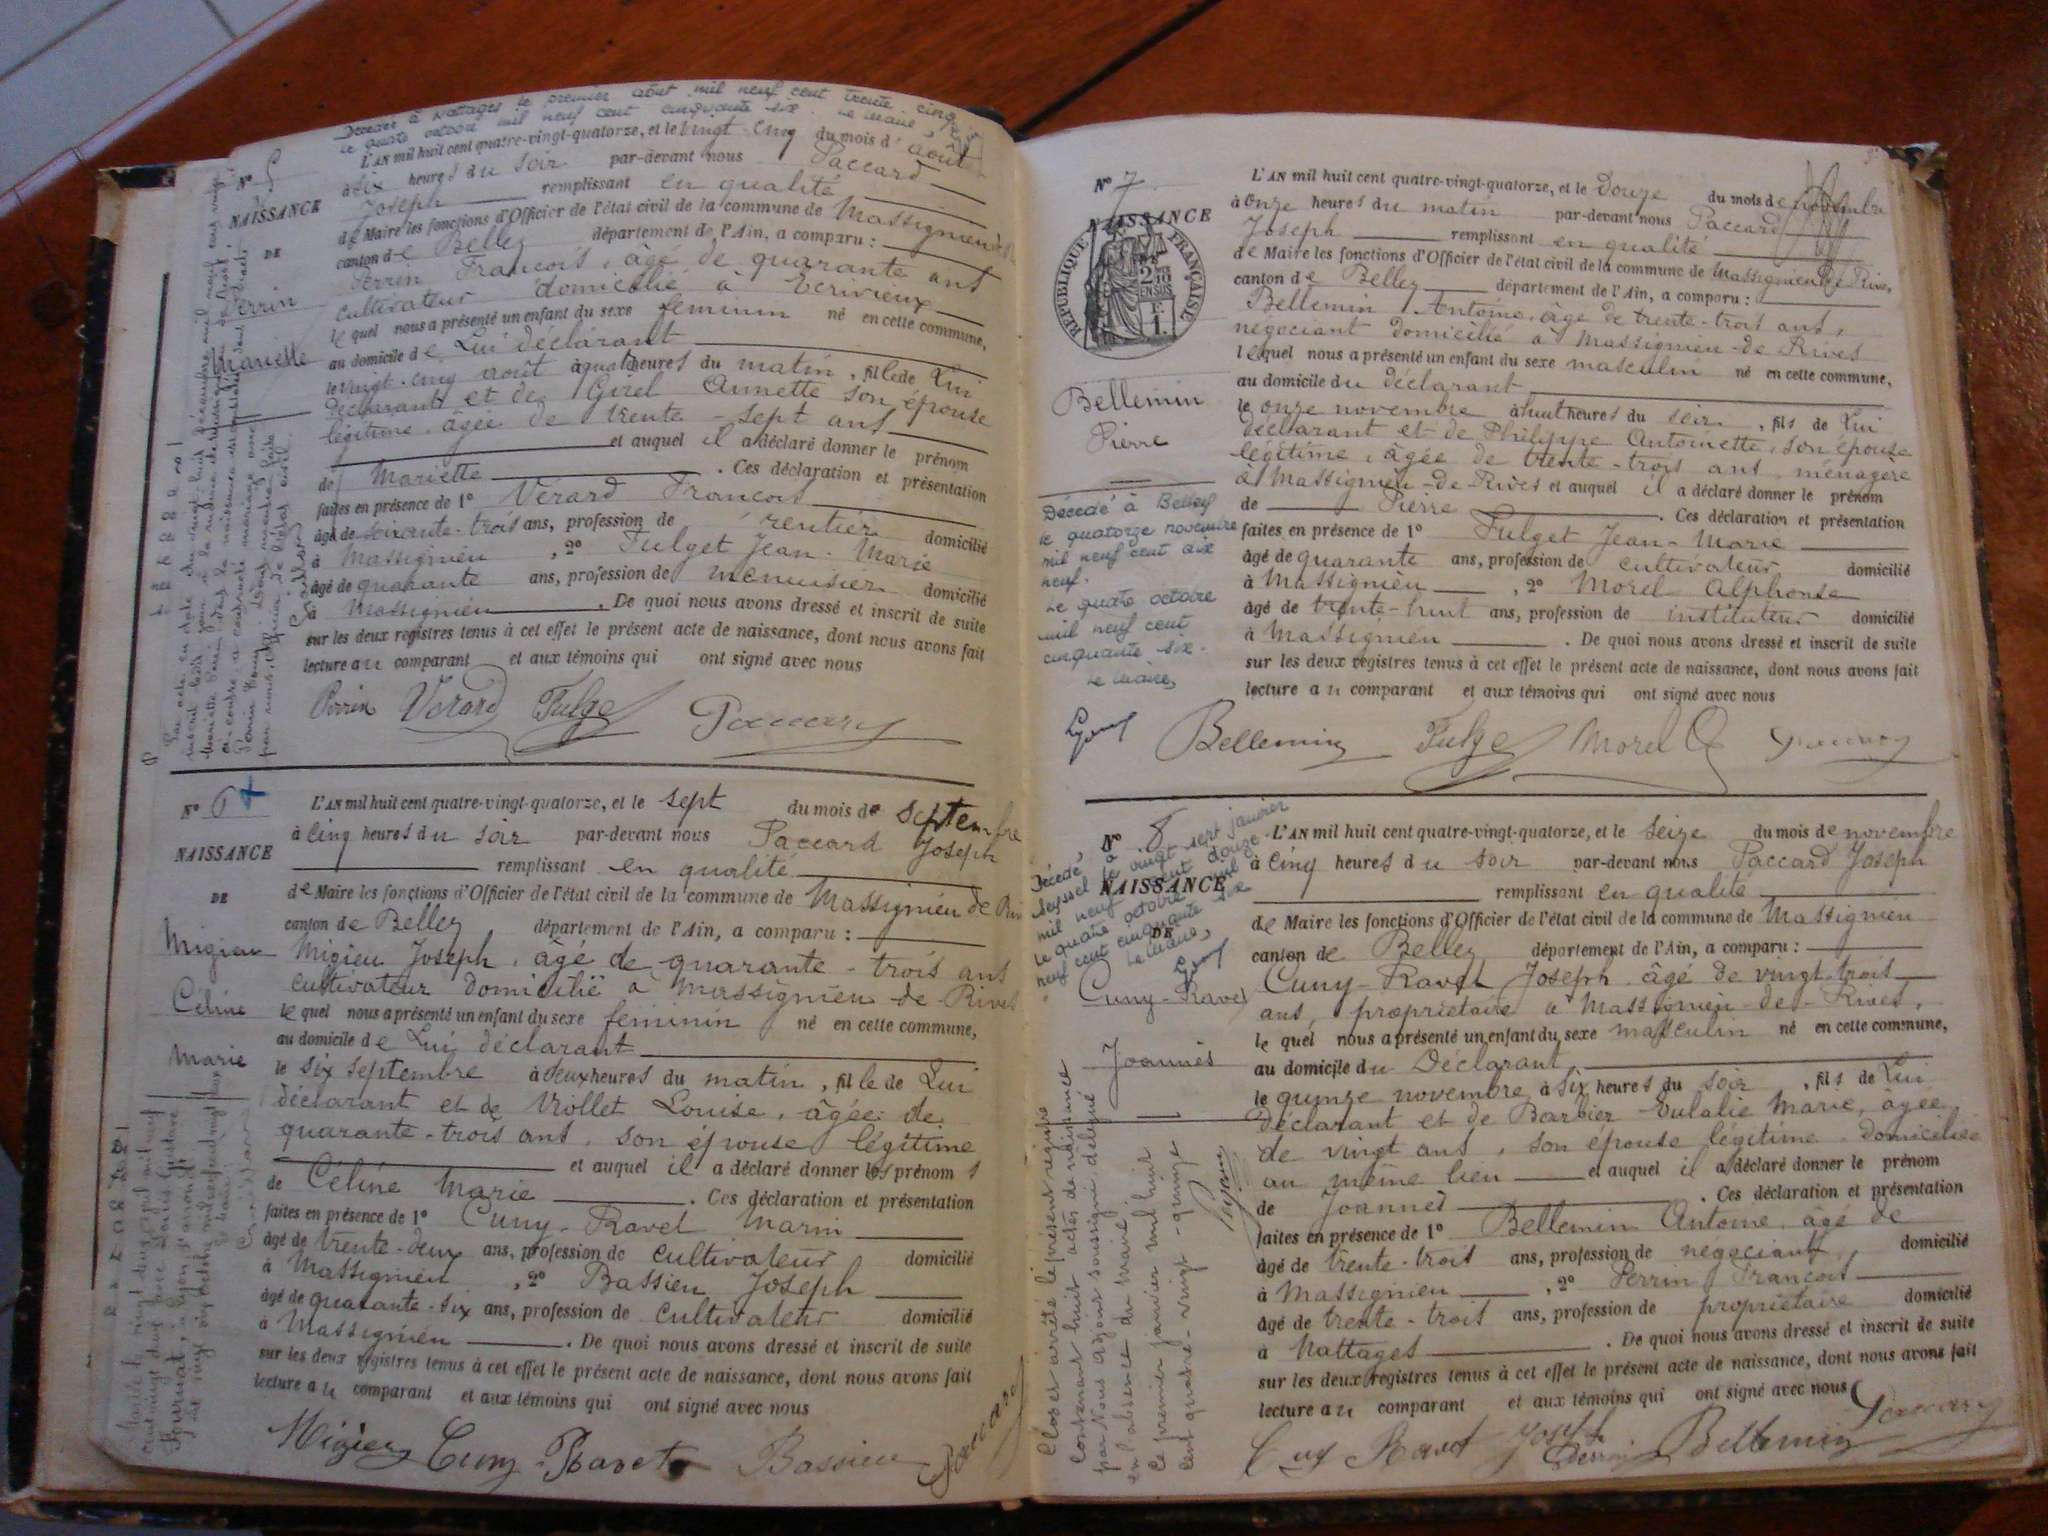 Décédée à Nattages le premier août mil neuf cent trente cinq
Le quatre octobre mil neuf cent cinquante six. Le Maire,
N° 5
NAISSANCE
DE
Perrin
Mariette
L'AN mil huit cent quatre-vingt-quatorze, et le vingt-cinq du mois d'août
à six heures du soir par-devant nous Paccard
Joseph remplissant en qualité
de Maire les fonctions d'Officier de l'état civil de la commune de Massignieu de
canton de Belley département de l'Ain, a comparu :
Perrin François, âgé de quarante ans
cultivateur domicilié à Ecrivieux
lequel nous a présenté un enfant du sexe feminin né en cette commune,
au domicile de Lui déclarant
le vingt-cinq août à quatre heures du matin, fille de Lui
déclarant et de Girel Annette son épouse
légitime, âgée de trente-sept ans
et auquel il a déclaré donner le prénom
de Mariette. Ces déclaration et présentation
faites en présence de 1° Vérard François
âgé de soixante-trois ans, profession de rentier domicilié
à Massignieu, 2° Fulget Jean-Marie
âgé de quarante ans, profession de menuisier domicilié
à Massignieu. De quoi nous avons dressé et inscrit de suite
sur les deux registres tenus à cet effet le présent acte de naissance, dont nous avons fait
lecture au comparant et aux témoins qui ont signé avec nous
Perrin Verard Fulge Paccard
N° 6
NAISSANCE
DE
Migieu
Céline
Marie
L'AN mil huit cent quatre-vingt-quatorze, et le sept du mois de septembre
à cinq heures du soir par-devant nous Paccard Joseph
remplissant en qualité
de Maire les fonctions d'Officier de l'état civil de la commune de Massignieu de Riv
canton de Belley département de l'Ain, a comparu :
Migieu Joseph, âgé de quarante-trois ans
cultivateur domicilié à Massignieu-de-Rives
lequel nous a présenté un enfant du sexe feminin né en cette commune,
au domicile de Lui déclarant
le six septembre à deux heures du matin, fille de Lui
déclarant et de Viollet Louise, âgée de
quarante-trois ans, son épouse légitime
et auquel il a déclaré donner les prénoms
de Céline Marie. Ces déclaration et présentation
faites en présence de 1° Cuny-Ravet Marin
âgé de trente-deux ans, profession de cultivateur domicilié
à Massignieu, 2° Bassieu Joseph
âgé de quarante-six ans, profession de cultivateur domicilié
à Massignieu. De quoi nous avons dressé et inscrit de suite
sur les deux registres tenus à cet effet le présent acte de naissance, dont nous avons fait
lecture au comparant et aux témoins qui ont signé avec nous
Migieu Cuny-Ravet Bassieu Paccard
N° 7
NAISSANCE
RÉPUBLIQUE FRANÇAISE
Bellemin
Pierre
Décédé à Belley
le quatorze novembre
mil neuf cent dix
neuf.
Le quatre octobre
mil neuf cent
cinquante six.
Le Maire,
L'AN mil huit cent quatre-vingt-quatorze, et le Douze du mois de novembre
à onze heures du matin par-devant nous Paccard
Joseph remplissant en qualité
de Maire les fonctions d'Officier de l'état civil de la commune de Massignieu de Rives,
canton de Belley département de l'Ain, a comparu :
Bellemin Antoine, âgé de trente-trois ans,
négociant domicilié à Massignieu-de-Rives
lequel nous a présenté un enfant du sexe masculin né en cette commune,
au domicile du déclarant
le onze novembre à huit heures du soir, fils de Lui
déclarant et de Philippe Antoinette, son épouse
légitime, âgée de trente-trois ans, ménagère
à Massignieu-de-Rives et auquel il a déclaré donner le prénom
de Pierre. Ces déclaration et présentation
faites en présence de 1° Fulget Jean-Marie
âgé de quarante ans, profession de cultivateur domicilié
à Massignieu, 2° Morel Alphonse
âgé de trente-huit ans, profession de instituteur domicilié
à Massignieu. De quoi nous avons dressé et inscrit de suite
sur les deux registres tenus à cet effet le présent acte de naissance, dont nous avons fait
lecture au comparant et aux témoins qui ont signé avec nous
Bellemin Fulge Morel
N° 8
NAISSANCE
DE
Cuny-Ravet
Joannès
Décédé à
Seyssel le vingt sept janvier
mil neuf cent douze
Le quatre octobre mil
neuf cent cinquante six
Le Maire,
L'AN mil huit cent quatre-vingt-quatorze, et le seize du mois de novembre
à cinq heures du soir par-devant nous Paccard Joseph
remplissant en qualité
de Maire les fonctions d'Officier de l'état civil de la commune de Massignieu
canton de Belley département de l'Ain, a comparu :
Cuny-Ravet Joseph, âgé de vingt-trois
ans, propriétaire à Massignieu-de-Rives,
lequel nous a présenté un enfant du sexe masculin né en cette commune,
au domicile du Déclarant,
le quinze novembre à six heures du soir, fils de Lui
Déclarant et de Barbier Eulalie Marie, âgée
de vingt ans, son épouse légitime, domiciliée
au même lieu et auquel il a déclaré donner le prénom
de Joannès. Ces déclaration et présentation
faites en présence de 1° Bellemin Antoine, âgé de
âgé de trente-trois ans, profession de négociant, domicilié
à Massignieu, 2° Perrin François
âgé de trente-trois ans, profession de propriétaire domicilié
à Nattages. De quoi nous avons dressé et inscrit de suite
sur les deux registres tenus à cet effet le présent acte de naissance, dont nous avons fait
lecture au comparant et aux témoins qui ont signé avec nous
Cuny Ravet Joseph Perrin Bellemin Paccard
Clos et arrêté le présent registre
contenant huit actes de naissance
par Nous adjoint soussigné délégué
en l'absence du Maire,
Ce premier janvier mil huit
cent quatre-vingt-quinze